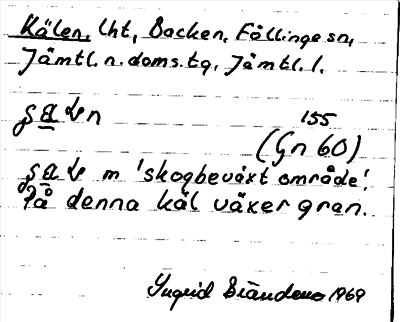 Kälen, lht, Backen, Föllinge sn,
Jämtl. n. doms. tg, Jämtl. l.
155
(Gn 60)
m 'skogbeväxt område'.
På denna käl växer gran.
Ingrid 1969